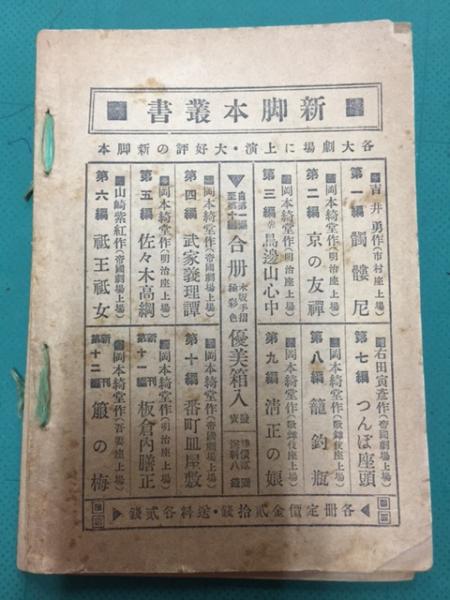 新脚本叢書
各大劇場に上演・大好評の新脚本
吉井勇作(市村座上場)
第一編 髑髏尼
岡本綺堂作(明治座上場)
第二編 京の友禪
岡本綺堂作(明治座上場)
第三編 鳥邊山心中
自第一編
至第十編
合册
木版手摺
極彩色
優美箱入
岡本綺堂作(帝國劇場上場)
第四編 武家義理譚
岡本綺堂作(明治座上場)
第五編 佐々木高綱
山崎紫紅作(帝國劇場上場)
第六編 祗王祗女
右田寅彦作(帝國劇場上場)
第七編 つんぼ座頭
岡本綺堂作(歌舞伎座上場)
第八編 籠釣瓶
岡本綺堂作(歌舞伎座上場)
第九編 清正の娘
岡本綺堂作(帝國劇場上場)
第十編 番町皿屋敷
岡本綺堂作(明治座上場)
新刊
第十一編 板倉内膳正
岡本綺堂作(吾妻座上場)
新刊
第十二編 箙の梅
各册定價金貳拾錢・送料各貳錢